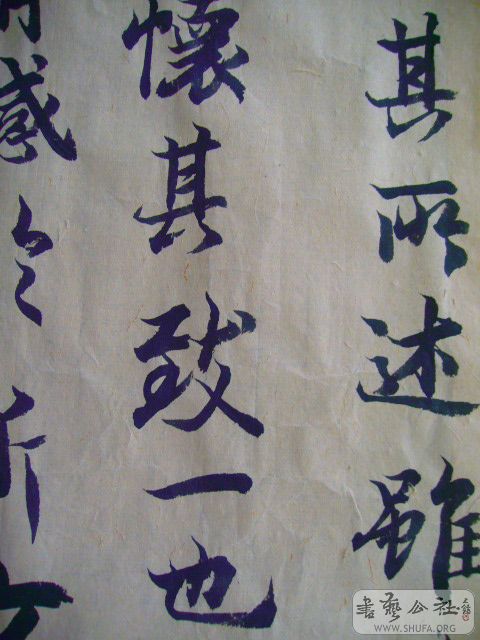 其所述雖
懷其致一也
感
書藝公社
WWW.SHUFA.ORG